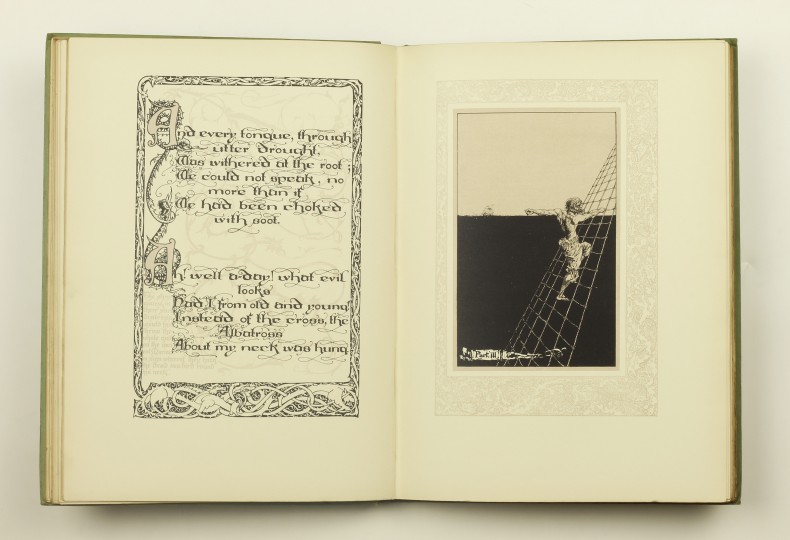 And every tongue, through
utter drought,
Was withered at the root ;
We could not speak, no
more than if
We had been choked
with soot.
Ah! well a-day! what evil
looks
Had I from old and young!
Instead of the cross, the
Albatross
About my neck was hung
Part III